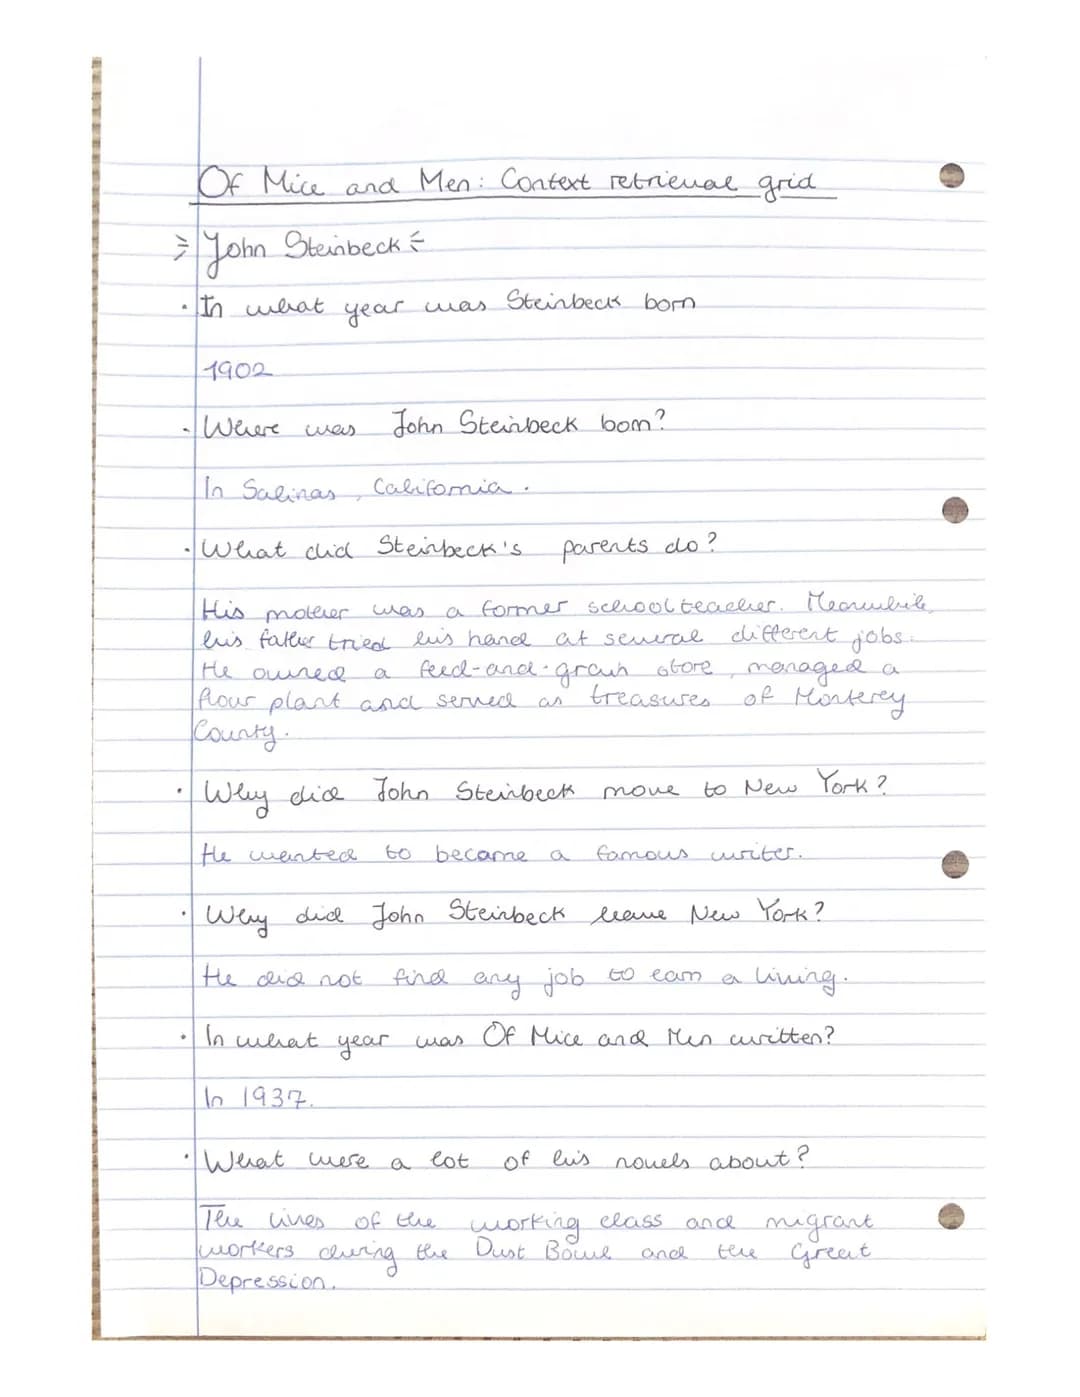 Of Mice and Men: Context retrieval grid
John Steinbeck
· In what year was Steinbeck born
1902
· Where was John Steinbeck born?
In Salinas, California.
· What did Steinbeck's parents do?
His mother was a former schoolteacher. Meanwhile,
his father tried his hand at several different jobs.
He owned a feed-and-grain store, managed a
flour plant and served as treasures of Monterey
County.
· Why did John Steinbeck move to New York?
He wanted to became a famous writer.
· Why did John Steinbeck leave New York?
He did not find any job to earn a living.
· In what year was Of Mice and Men written?
In 1937.
· What were a lot of his novels about?
The lives of the working class and migrant
workers during the Dust Bowl and the Great
Depression.